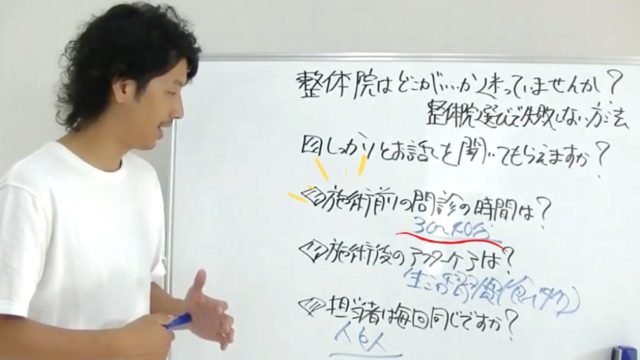 整体院はどこがいいか迷っていませんか？
整体院選びで失敗しない方法
しっかりとお話しを聞いてもらえますか？
施術前の問診の時間は？
30〜40分
施術後のアフターケアは？
生活習慣
担当者は毎回同じですか？